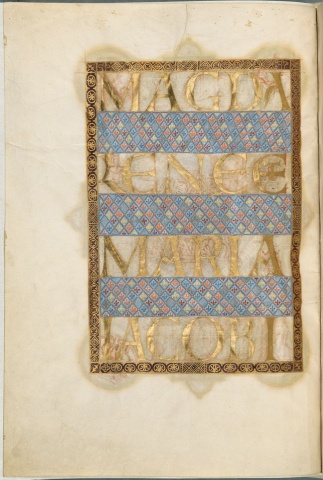 MAGDA
LENE ET
MARIA
IACOBI